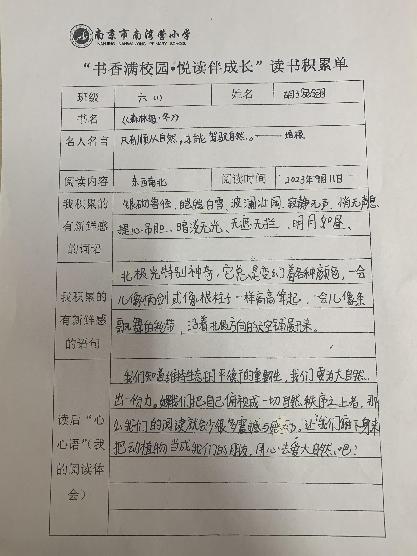 南京市南湾营小学
NANJING NANWANYING PRIMARY SCHOOL
“书香满校园·悦读伴成长”读书积累单
班级 六(1) 姓名
书名 《森林报·冬》
名人名言 只有顺从自然,才能驾驭自然。——培根
阅读内容 东西南北 阅读时间 2023年9月11日
我积累的有新鲜感的词语
银砌雪佳、皑皑白雪、波澜壮阔、寂静无声、悄无声息
提心吊胆、暗淡无光、无遮无拦、明月如昼、
我积累的有新鲜感的语句
北极光特别神奇,它总是变幻着各种颜色,一会
儿像两剑或像根柱子一样高高耸起,一会儿像条
的丝带,沿着北极方向的天空铺展开来。
读后“心心语”(我的阅读体会)
我们知道维持生态的平衡的重要性,我们要为大自然
出一份力。如我们把自己俯视成一切自然秩序之上者,那
么我们的阅读就会少很多震撼与感动。让我们俯下身来
把动植物当成我们的朋友,用心去爱大自然吧!